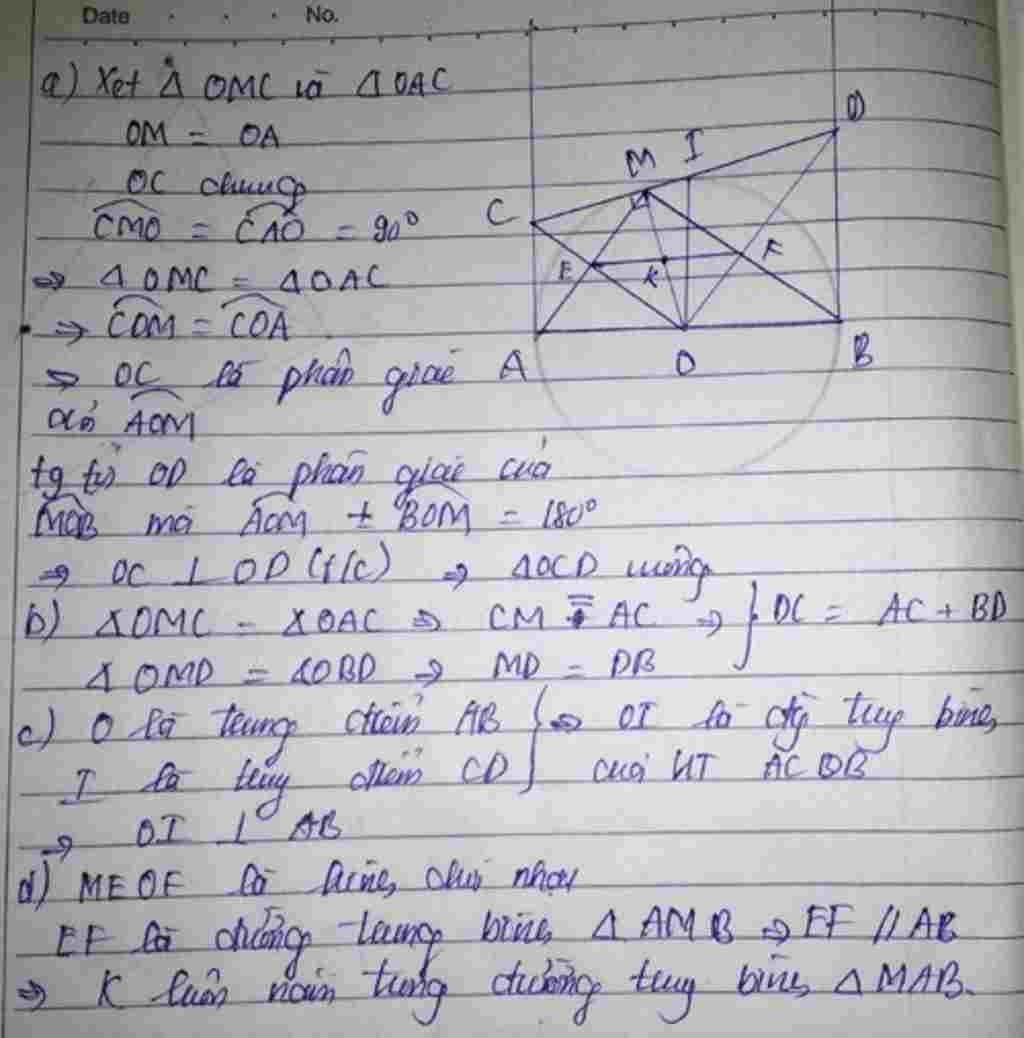 Date . . . No.
a) Xét Δ OMC và Δ OAC
OM = OA
OC chung
CMO = CAO = 90°
⇒ Δ OMC = Δ OAC
⇒ COM = COA
⇒ OC là phân giác
của AOM
tg tự OD là phân giác của
MOB mà AOM + BOM = 180°
⇒ OC ⊥ OD (t/c) ⇒ ΔOCD vuông
b) ΔOMC = ΔOAC ⇒ CM = AC ⇒ } DC = AC + BD
Δ OMD = ΔOBD ⇒ MD = DB
c) O là trung điểm AB } ⇒ OI là đg tug bình
I là tug điểm CD } của HT ACDB
⇒ OI ⊥ AB
d) MEOF là hình chữ nhật
EF là đường trung bình Δ AMB ⇒ EF // AB
⇒ K luôn đường tug bình Δ MAB.
D
M I
C
E K F
A O B